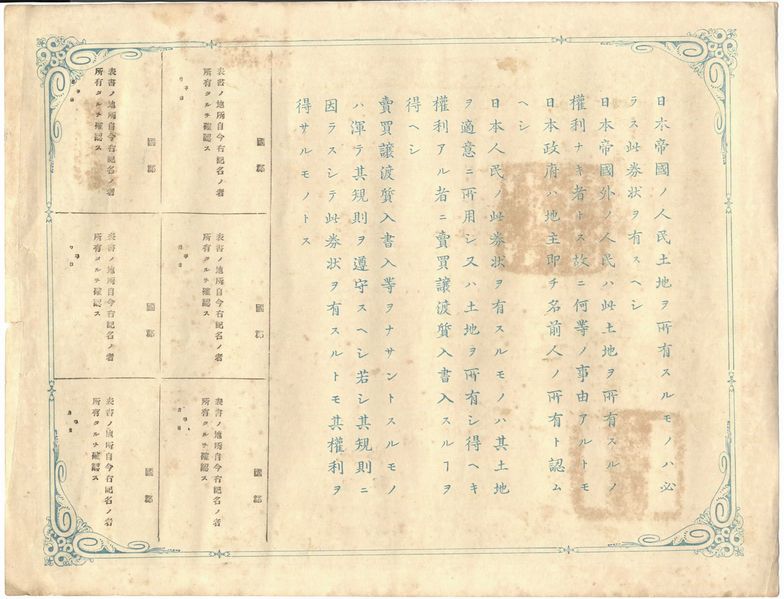 日本帝國ノ人民土地ヲ所有スルモノハ必
ラス此券狀ヲ有スヘシ
日本帝國外ノ人民ハ此土地ヲ所有スルノ
權利ナキ者トス故ニ何等ノ事由アルトモ
日本政府ハ地主即チ名前人ノ所有ト認ム
ヘシ
日本人民ノ此券狀ヲ有スルモノハ其土地
ヲ適意ニ所用シ又ハ土地ヲ所有シ得ヘキ
權利アル者ニ賣買讓渡質入書入スルヿヲ
得ヘシ
賣買讓渡質入書入等ヲナサントスルモノ
ハ渾テ其規則ヲ遵守スヘシ若シ其規則ニ
因ラスシテ此券狀ヲ有スルトモ其權利ヲ
得サルモノトス
國 郡
表書ノ地所自今右記名ノ者
所有タルヲ確認ス
年 月 日
國 郡
表書ノ地所自今右記名ノ者
所有タルヲ確認ス
年 月 日
國 郡
表書ノ地所自今右記名ノ者
所有タルヲ確認ス
年 月 日
國 郡
表書ノ地所自今右記名ノ者
所有タルヲ確認ス
年 月 日
國 郡
表書ノ地所自今右記名ノ者
所有タルヲ確認ス
年 月 日
國 郡
表書ノ地所自今右記名ノ者
所有タルヲ確認ス
年 月 日